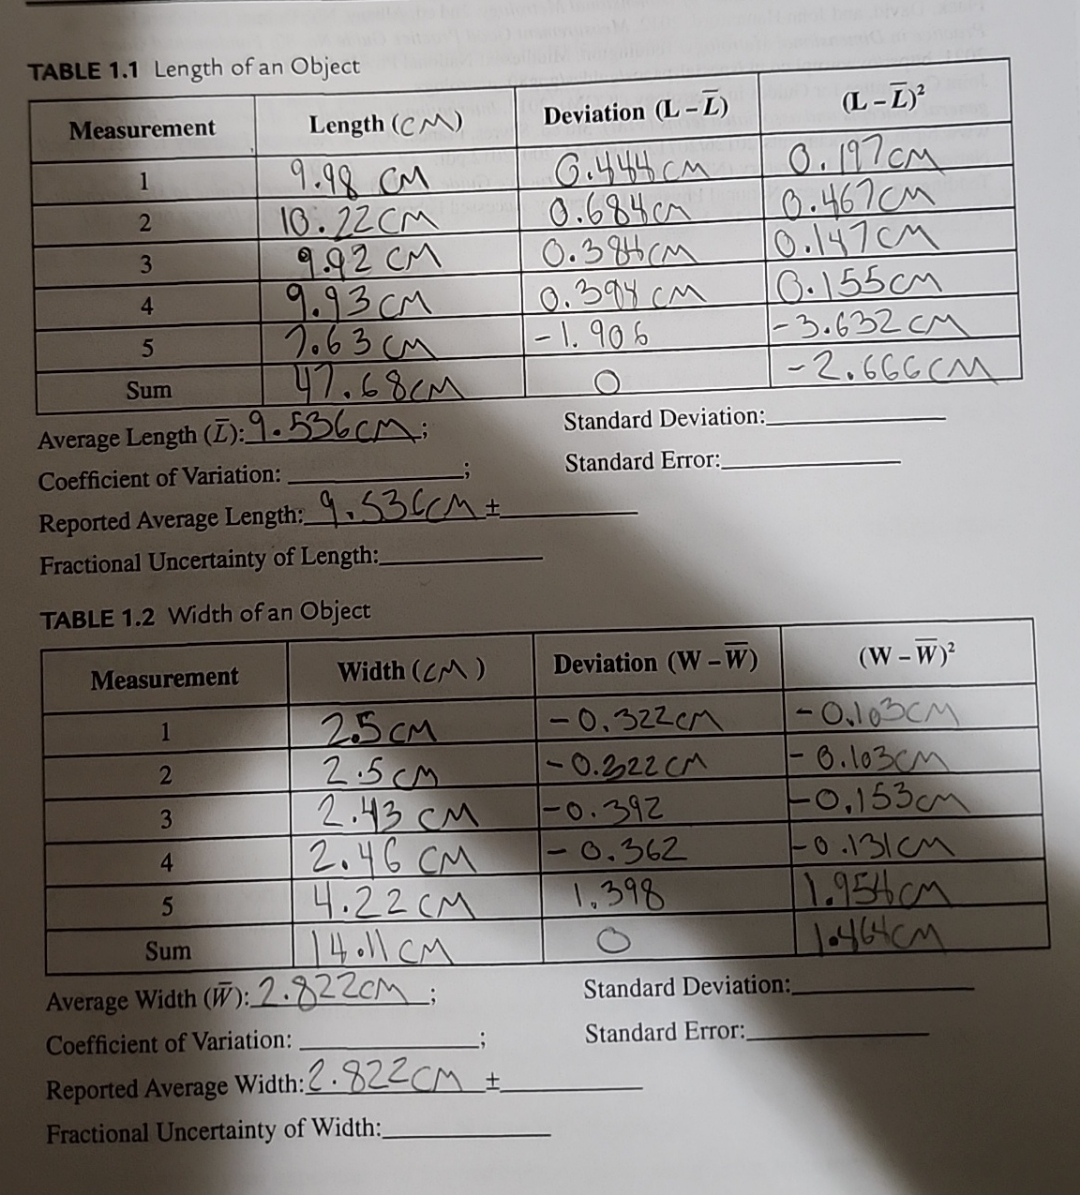 TABLE 1.1 Length of an Object
Measurement Length (CM) Deviation (L – L̅) (L – L̅)²
1 9.98 CM 0.444 CM 0.197 CM
2 10.22 CM 0.684 CM 0.467 CM
3 9.92 CM 0.384 CM 0.147 CM
4 9.93 CM 0.394 CM 0.155 CM
5 7.63 CM -1.906 -3.632 CM
Sum 47.68 CM 0 -2.666 CM
Average Length (L̅): 9.536 CM; Standard Deviation:
Coefficient of Variation: ; Standard Error:
Reported Average Length: 9.536 CM ±
Fractional Uncertainty of Length:
TABLE 1.2 Width of an Object
Measurement Width (CM) Deviation (W – W̅) (W – W̅)²
1 2.5 CM -0.322 CM -0.103 CM
2 2.5 CM -0.322 CM -0.103 CM
3 2.43 CM -0.392 -0.153 CM
4 2.46 CM -0.362 -0.131 CM
5 4.22 CM 1.398 1.954 CM
Sum 14.11 CM 0 1.464 CM
Average Width (W̅): 2.822 CM; Standard Deviation:
Coefficient of Variation: ; Standard Error:
Reported Average Width: 2.822 CM ±
Fractional Uncertainty of Width: